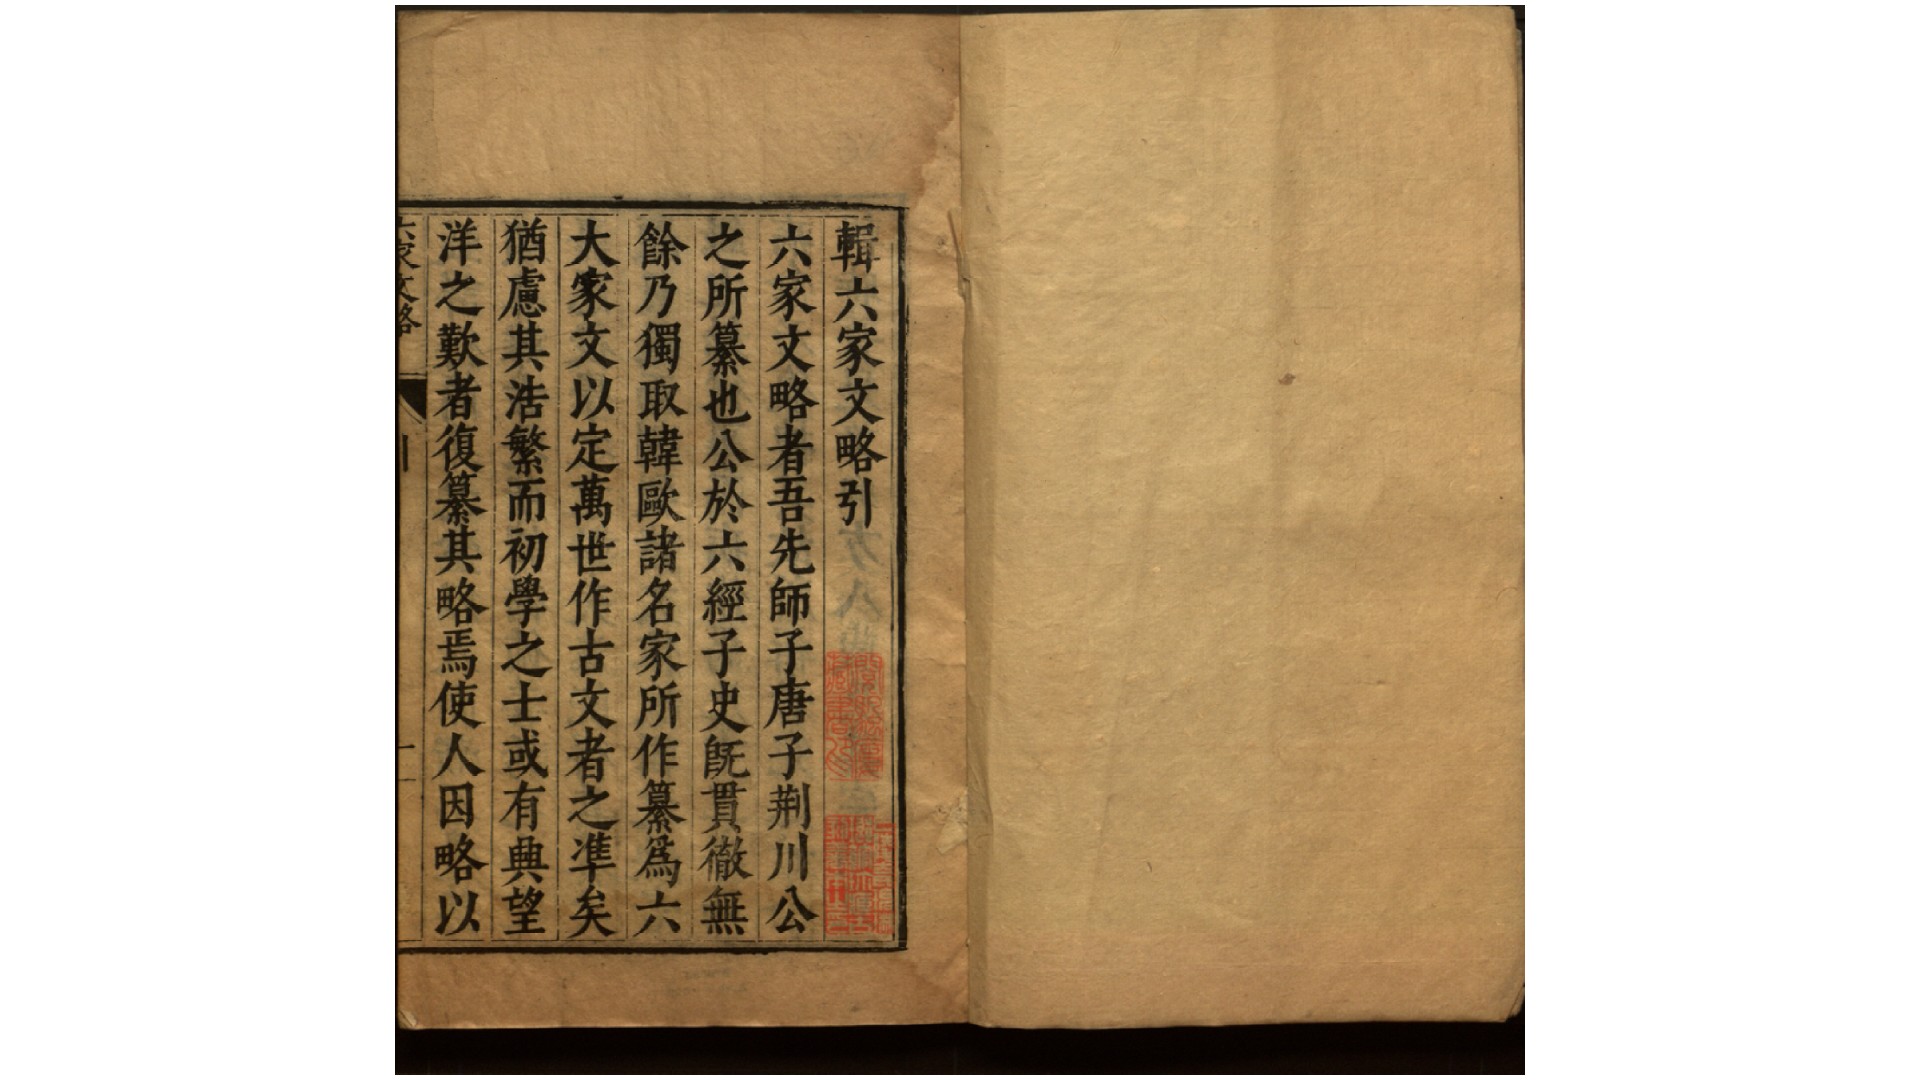 輯六家文略引
六家文略者吾先師子唐子荆川公
之所纂也公於六經子史既貫徹無
餘乃獨取韓歐諸名家所作纂爲六
大家文以定萬世作古文者之準矣
猶慮其浩繁而初學之士或有典望
洋之歎者復纂其略焉使人因略以
六家文略